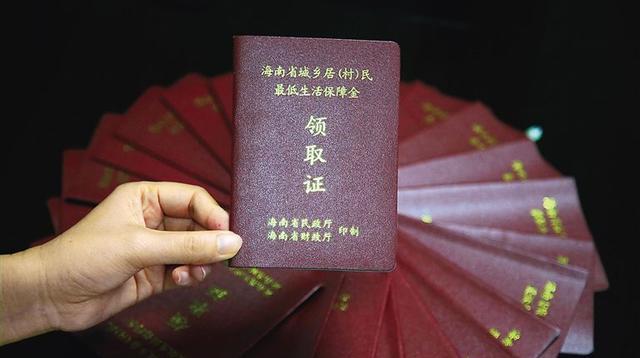 海南省城乡居(村)民
最低生活保障金
领
取
证
海南省民政厅
海南省财政厅 印制